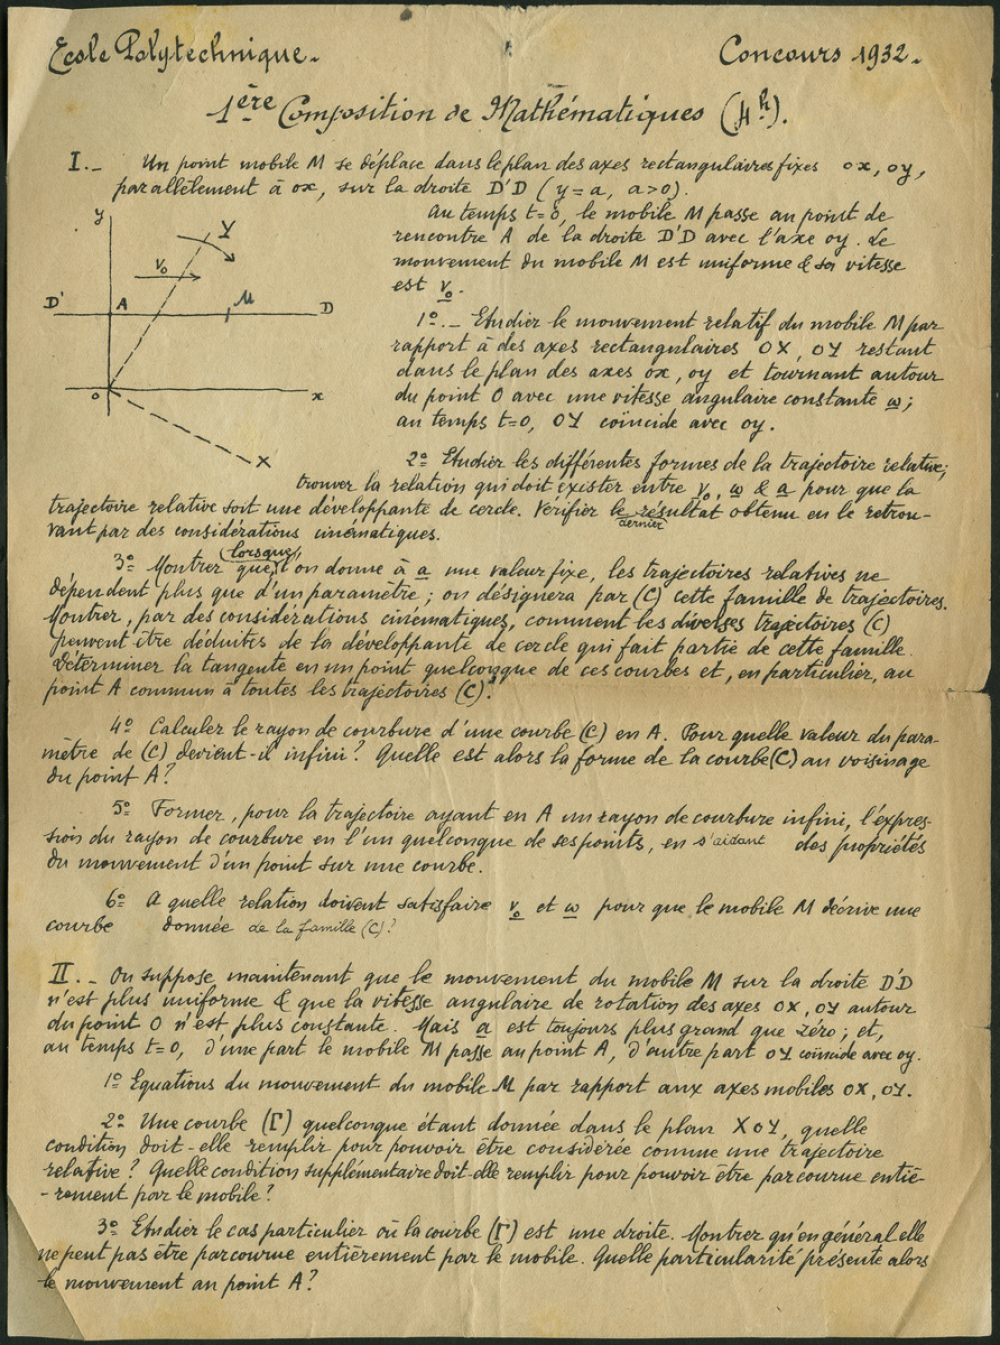 Ecole Polytechnique.
Concours 1932.
1ère Composition de Mathématiques (4h).
I.- Un point mobile M se déplace dans le plan des axes rectangulaires fixes ox, oy,
parallèlement à ox, sur la droite D'D (y=a, a>0).
Au temps t=0, le mobile M passe au point de
rencontre A de la droite D'D avec l'axe oy. Le
mouvement du mobile M est uniforme & sa vitesse
est v₀.
y
Y
v₀
D'
A
M
D
o
x
X
1º.- Etudier le mouvement relatif du mobile M par
rapport à des axes rectangulaires OX, OY restant
dans le plan des axes ox, oy et tournant autour
du point O avec une vitesse angulaire constante ω;
au temps t=0, OY coïncide avec oy.
2º Etudier les différentes formes de la trajectoire relative;
trouver la relation qui doit exister entre v₀, ω & a pour que la
trajectoire relative soit une développante de cercle. Vérifier le résultat obtenu en le retrou-
dernier
vant par des considérations cinématiques.
3º Montrer que, l'on donne à a une valeur fixe, les trajectoires relatives ne
(lorsque)
dépendent plus que d'un paramètre; on désignera par (C) cette famille de trajectoires.
Montrer, par des considérations cinématiques, comment les diverses trajectoires (C)
peuvent être déduites de la développante de cercle qui fait partie de cette famille.
Déterminer la tangente en un point quelconque de ces courbes et, en particulier, au
point A commun à toutes les trajectoires (C).
4º Calculer le rayon de courbure d'une courbe (C) en A. Pour quelle valeur du para-
mètre de (C) devient-il infini? Quelle est alors la forme de la courbe (C) au voisinage
du point A?
5º Former, pour la trajectoire ayant en A un rayon de courbure infini, l'expres-
sion du rayon de courbure en l'un quelconque de ses points, en s'aidant des propriétés
du mouvement d'un point sur une courbe.
6º A quelle relation doivent satisfaire v₀ et ω pour que le mobile M décrive une
courbe donnée de la famille (C)?
II.- On suppose maintenant que le mouvement du mobile M sur la droite D'D
n'est plus uniforme & que la vitesse angulaire de rotation des axes OX, OY autour
du point O n'est plus constante. Mais a est toujours plus grand que zéro; et,
au temps t=0, d'une part le mobile M passe au point A, d'autre part OY coïncide avec oy.
1º Equations du mouvement du mobile M par rapport aux axes mobiles OX, OY.
2º Une courbe (Γ) quelconque étant donnée dans le plan XOY, quelle
condition doit-elle remplir pour pouvoir être considérée comme une trajectoire
relative? Quelle condition supplémentaire doit-elle remplir pour pouvoir être parcourue entiè-
-rement par le mobile?
3º Etudier le cas particulier où la courbe (Γ) est une droite. Montrer qu'en général elle
ne peut pas être parcourue entièrement par le mobile. Quelle particularité présente alors
le mouvement au point A?